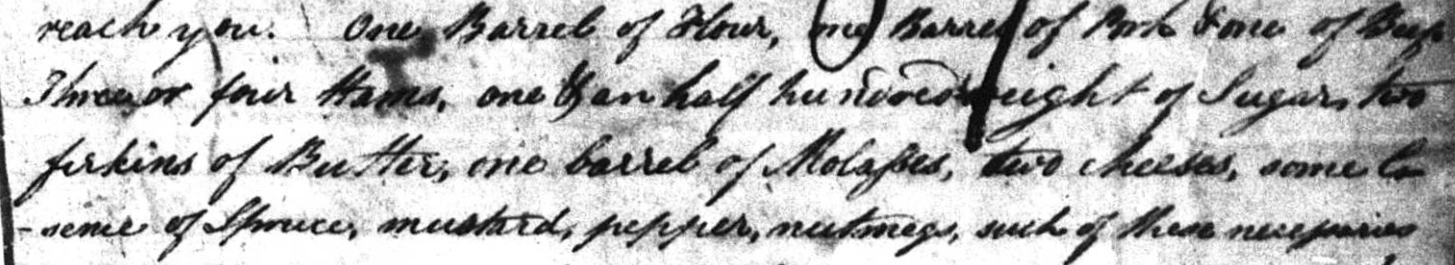 reach you. One Barrel of Flour, one Barrel of Pork & one of Beef
Three or four Hams, one & an half hundred weight of Sugar, two
firkins of Butter, one barrel of Molasses, two cheeses, some Es
-sence of Spruce, mustard, pepper, nutmegs, such of these necessaries